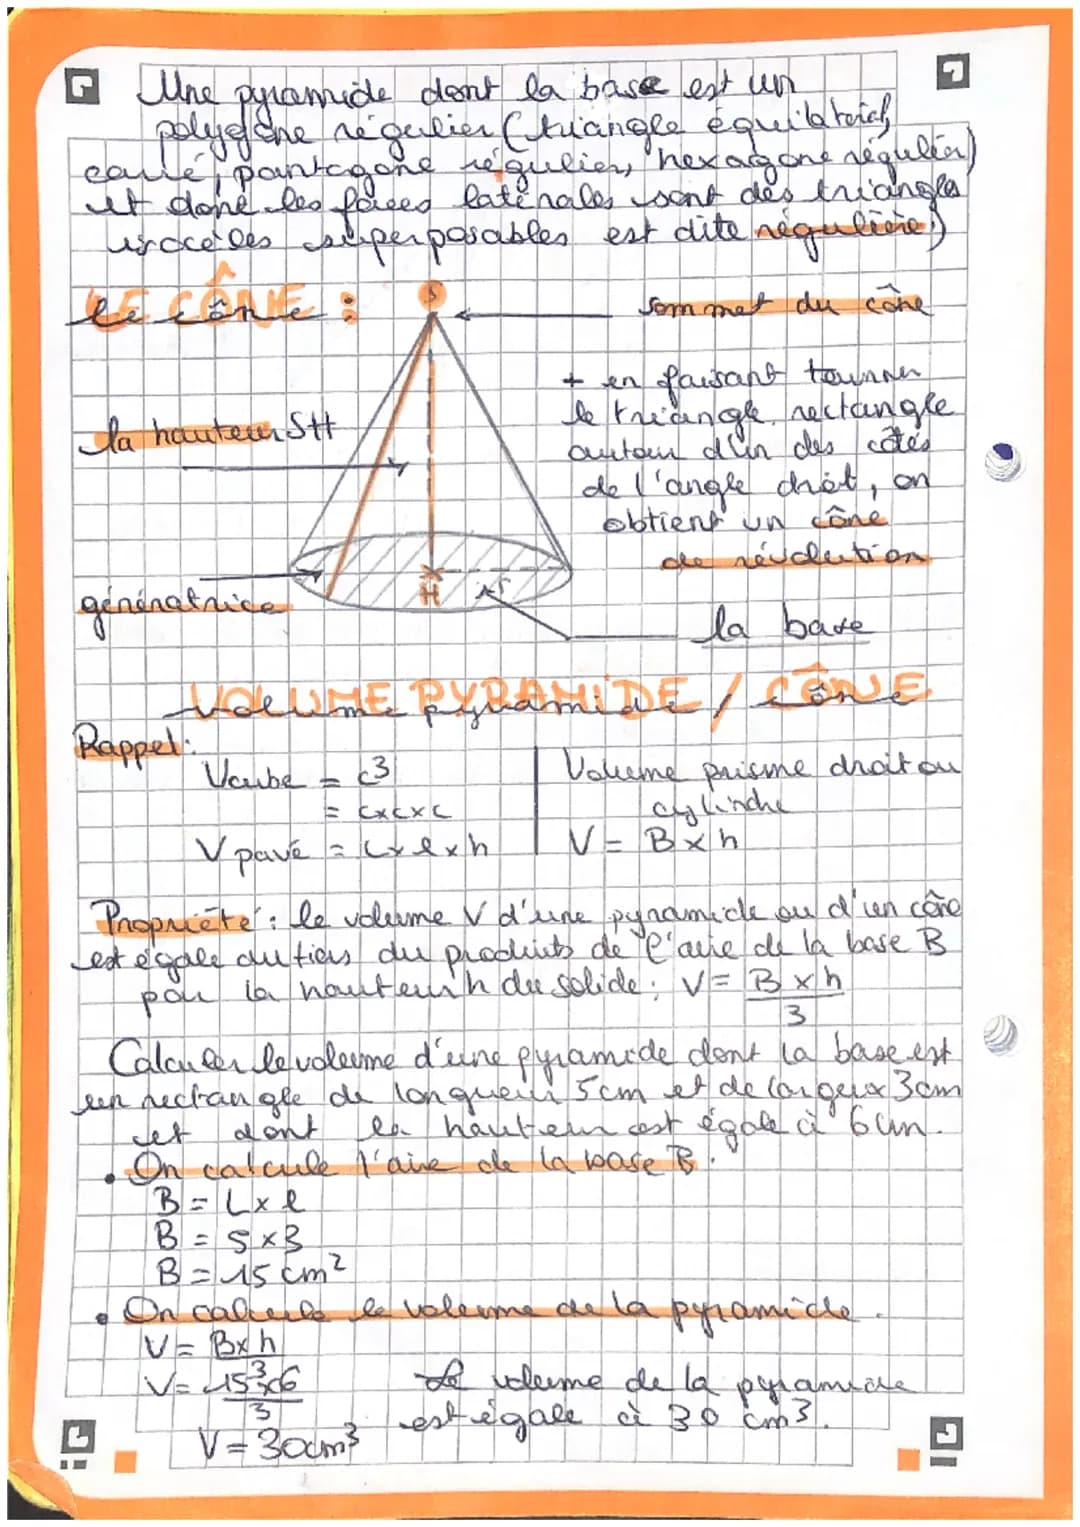 Une pyramide dont la base est un
polygone régulier (triangle équilatéral,
carré, pantagone régulier, hexagone régulier)
et dont les faces latérales sont des triangles
isocèles superposables est dite régulière)
LE CÔNE :
le cône :
S
sommet du cône
+ en faisant tourner
le triangle rectangle
la hauteur SH
autour d'un des côtés
de l'angle droit, on
obtient un cône
de révolution
génératrice
H
r
la base
VOLUME PYRAMIDE / CÔNE
Volume pyramide / cône
Rappel :
Vcube = c³
= c×c×c
V pavé = L×l×h
Volume prisme droit ou
cylindre
V = B×h
Propriété : le volume V d'une pyramide ou d'un cône
est égale au tiers du produits de l'aire de la base B
par la hauteur h du solide : V = B×h
3
Calculer le volume d'une pyramide dont la base est
un rectangle de longueur 5cm et de largeur 3cm
et dont la hauteur est égale à 6cm.
• On calcule l'aire de la base B.
B = L×l
B = 5×3
B = 15 cm²
• On calcule le volume de la pyramide.
V = B×h
3
V = 15×6
3
V = 30cm³
Le volume de la pyramide
est égale à 30 cm³.